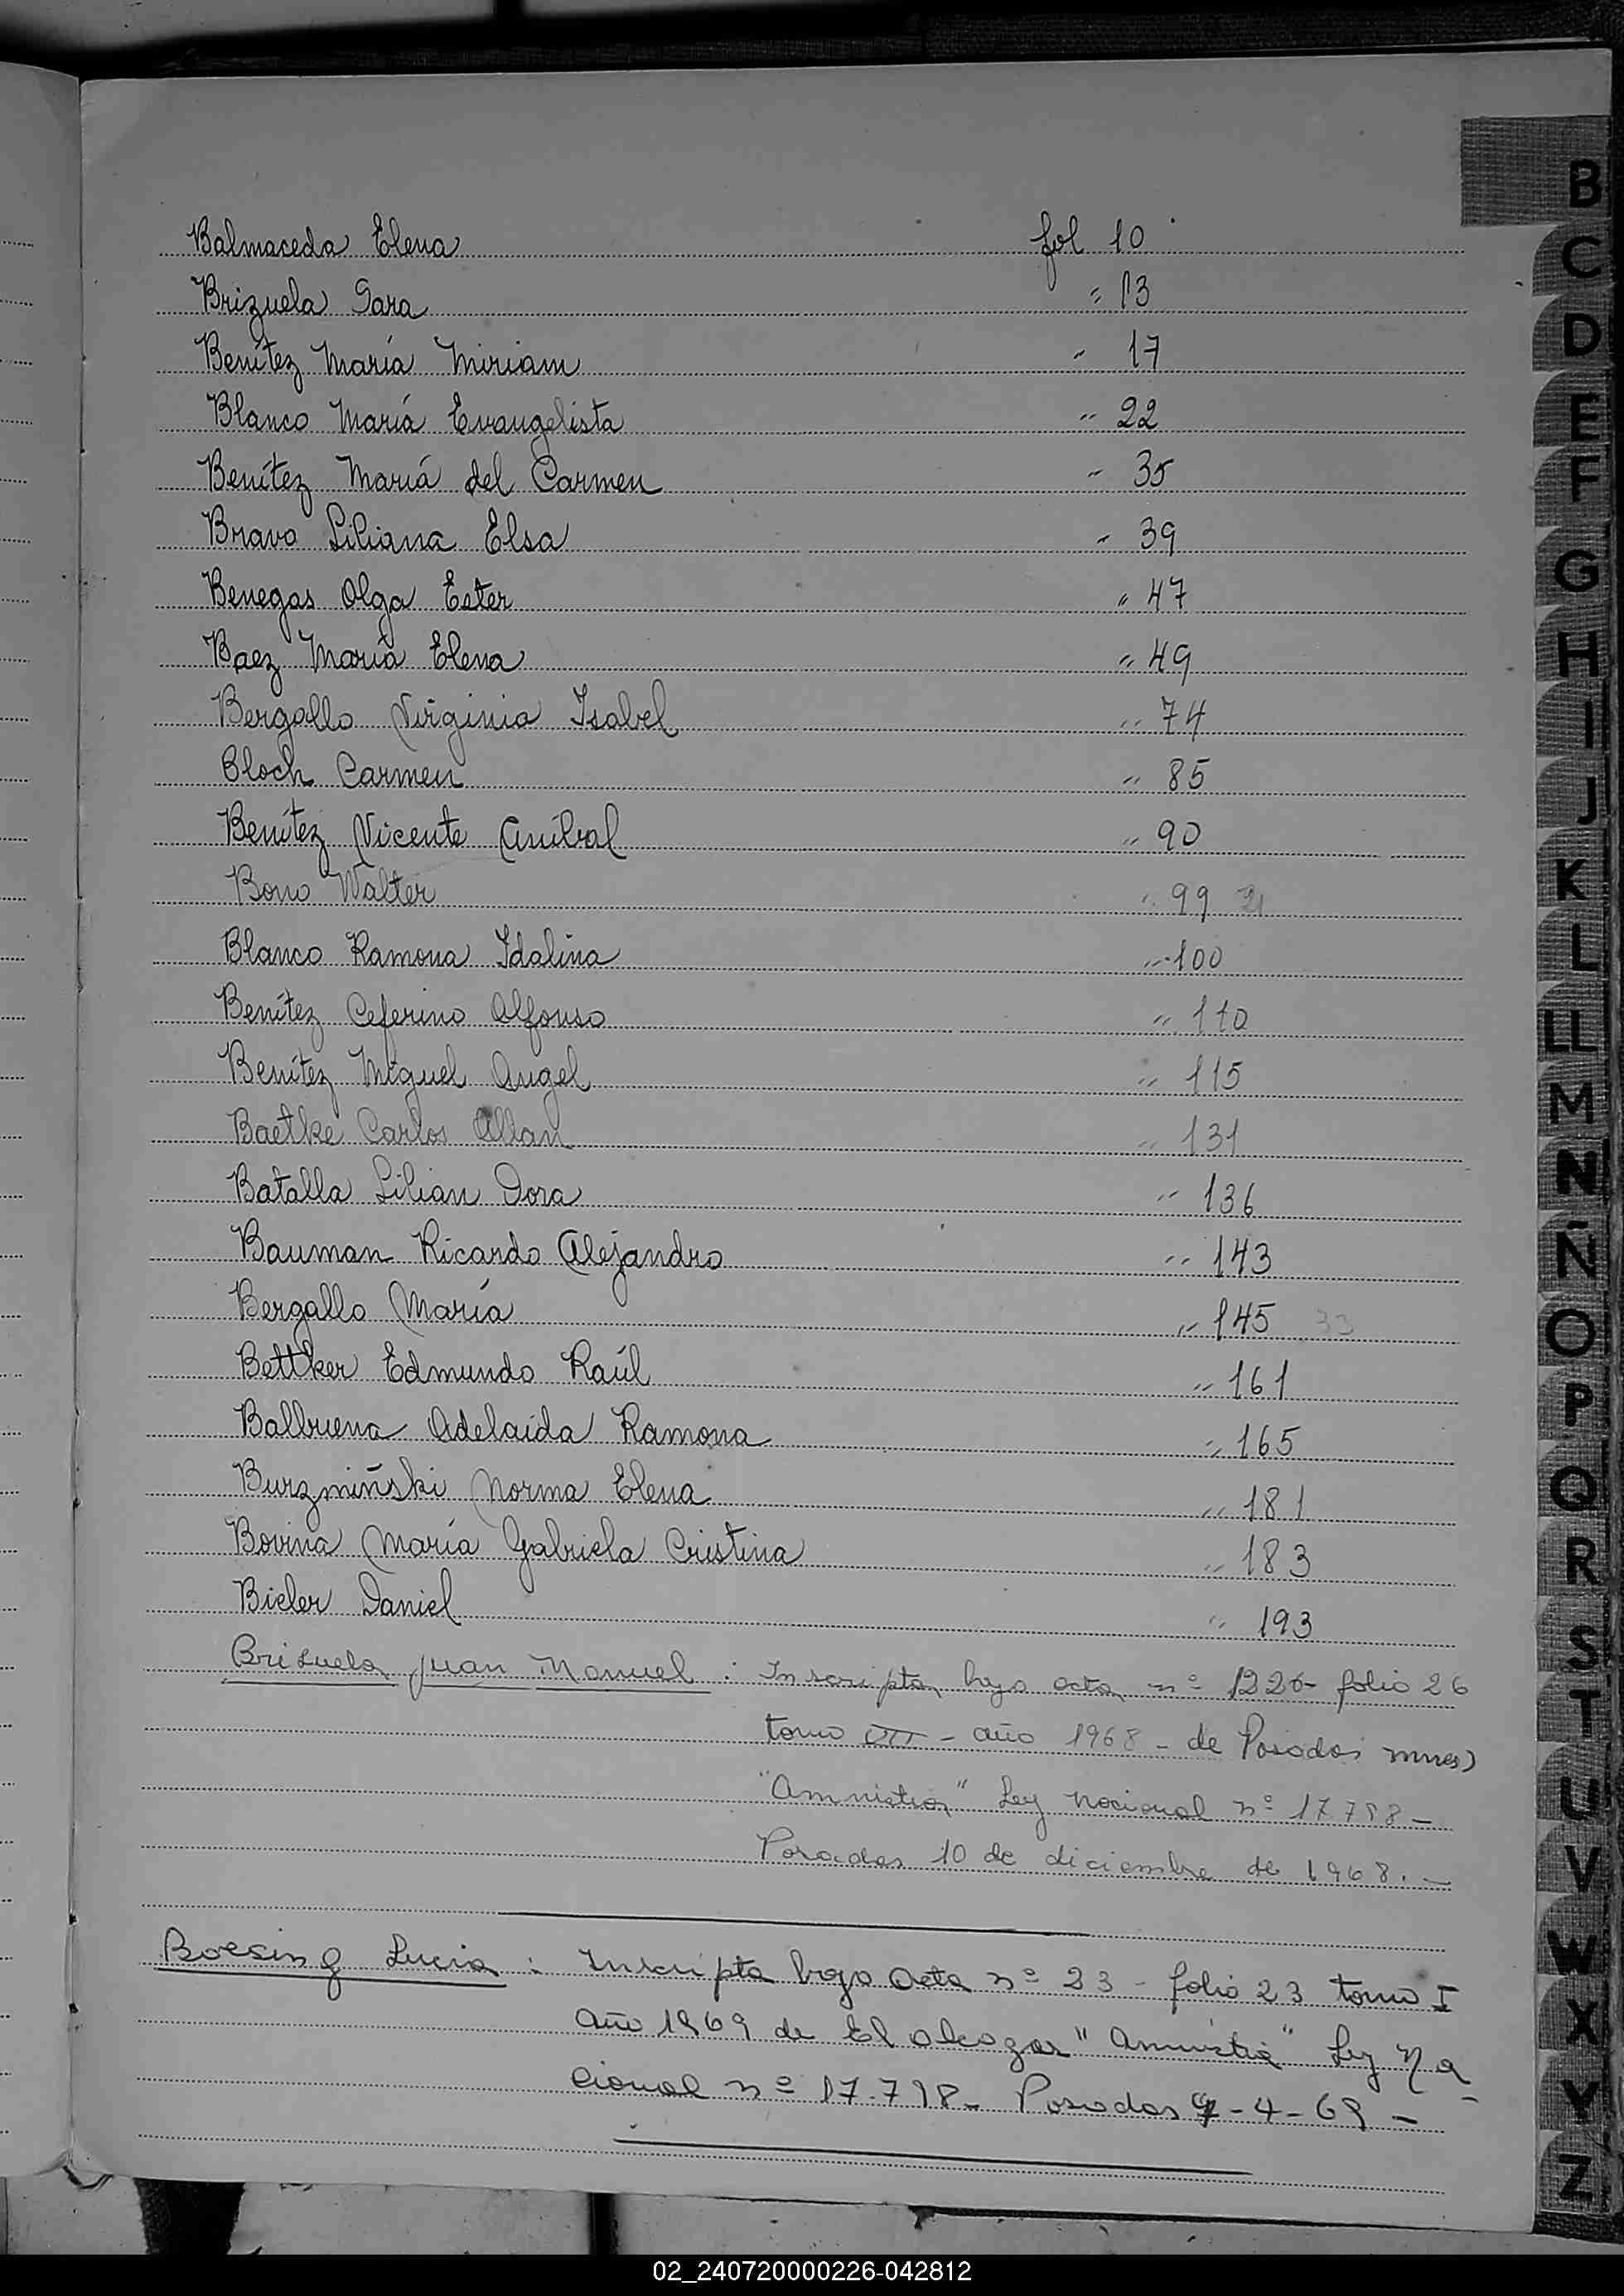 Balmaceda Elena fol 10
Brizuela Sara " 13
Benítez María Miriam " 17
Blanco María Evangelista " 22
Benítez María del Carmen " 35
Bravo Liliana Elsa " 39
Benegas Olga Ester " 47
Baez María Elena " 49
Bergallo Virginia Isabel " 74
Bloch Carmen " 85
Benítez Vicente Aníbal " 90
Bono Walter " 99
Blanco Ramona Idalina " 100
Benítez Ceferino Alfonso " 110
Benítez Miguel Angel " 115
Baetke Carlos Allan " 131
Batalla Lilian Dora " 136
Bauman Ricardo Alejandro " 143
Bergallo María " 145 33
Bettker Edmundo Raúl " 161
Balbuena Adelaida Ramona " 165
Burzmiński Norma Elena " 181
Bovina María Gabriela Cristina " 183
Bieler Daniel " 193
Brizuela Juan Manuel : Inscripta bajo acta nº 1226 - folio 26
tomo III - año 1968 - de Posadas mnes)
"Amnistia" Ley Nacional nº 17798 -
Posadas 10 de diciembre de 1968. -
Boesing Lucia : Inscripta bajo acta nº 23 - folio 23 tomo I
año 1969 de El Alcazar "Amnistia" Ley Na
cional nº 17.798 - Posadas -4-69 -
B
C
D
E
F
G
H
I
J
K
L
LL
M
N
Ñ
O
P
Q
R
S
T
U
V
W
X
Y
Z
02_240720000226-042812